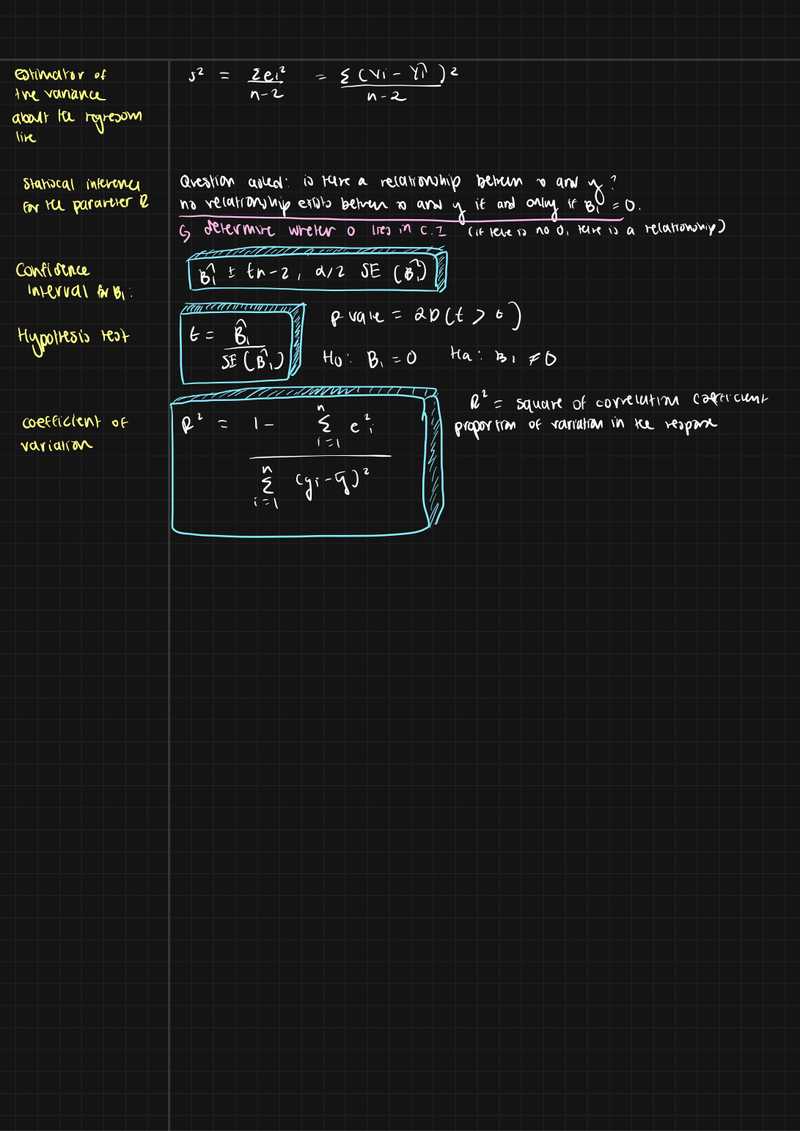 estimator of
the variance
about the regression
line
s² = Σei² / n-2 = Σ(Yi - Ŷi)² / n-2
Statiscal inference
for the parameter B
Question asked: is there a relationship between x and y?
no relationship exists between x and y if and only if B₁ = 0.
↳ determine wheter 0 lies in C.I (if there is no 0, there is a relationship)
Confidence
interval for B₁:
B̂₁ ± tn-2, α/2 SE (B̂₁)
Hypothesis test
t = B̂₁ / SE(B̂₁)
p value = 2P(t > t)
H₀: B₁ = 0 Ha: B₁ ≠ 0
coefficient of
variation
R² = 1 - Σⁿᵢ₌₁ e²ᵢ / Σⁿᵢ₌₁ (yi - ȳ)²
R² = square of correlation coefficient
proportion of variation in the response